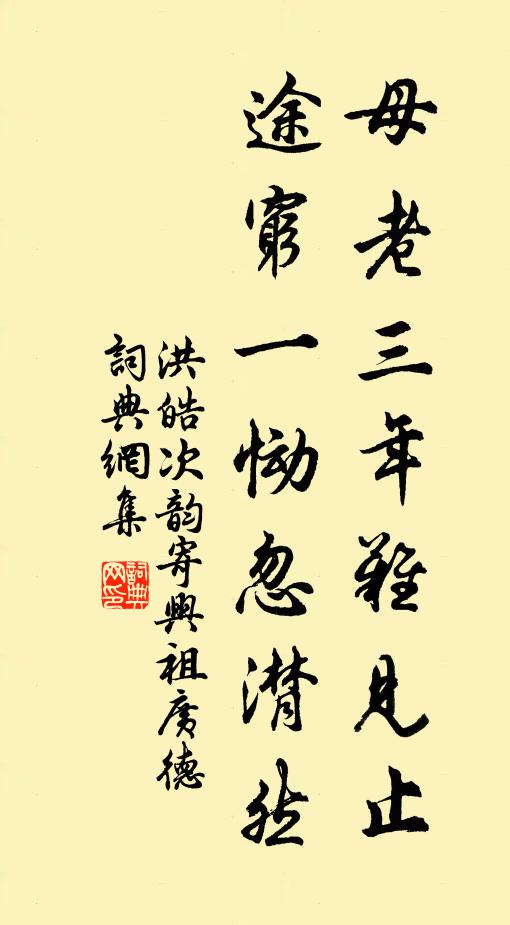 母老三年難見止
途窮一慟忽潸然
洪皓次韵寄興祖廣德
詞典網集
詞典网印